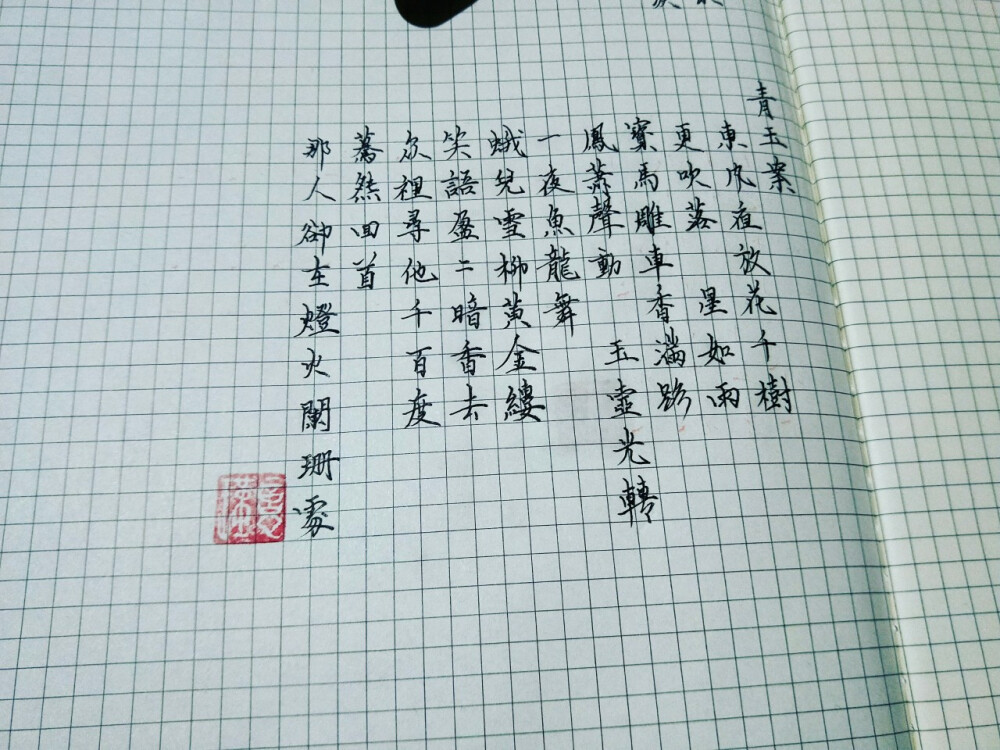 青玉案
東風夜放花千樹
更吹落 星如雨
寶馬雕車香滿路
鳳簫聲動 玉壺光轉
一夜魚龍舞
蛾兒雪柳黃金縷
笑語盈二暗香去
眾裡尋他千百度
驀然回首
那人卻在燈火闌珊處